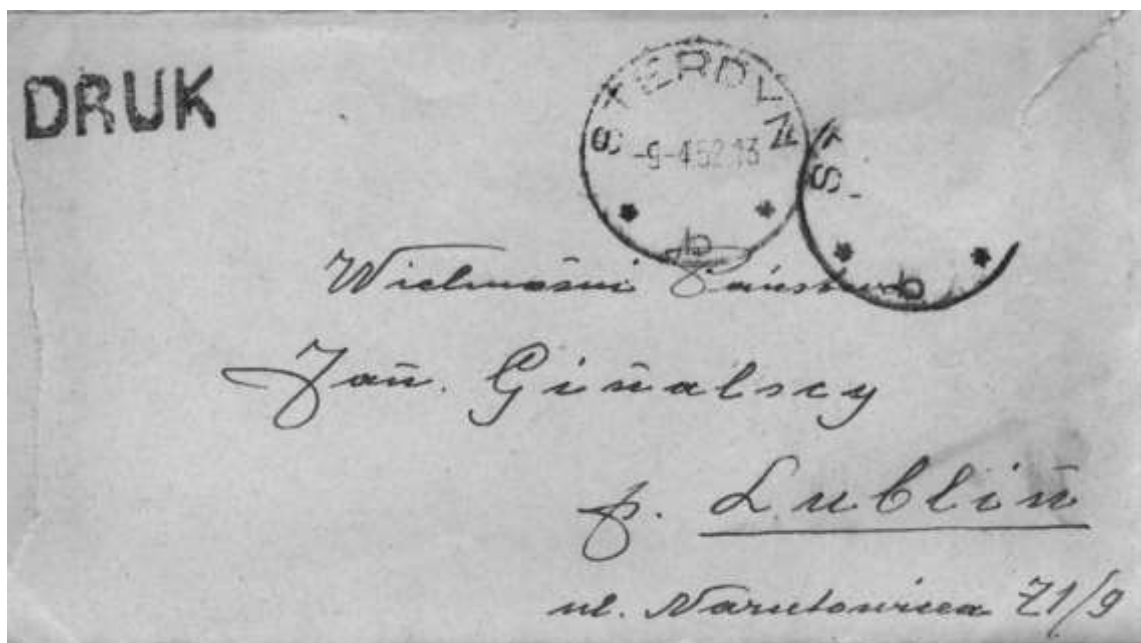 DRUK
STERDYŃ
-9-4.52.13
b
S
b
Wielmożni Państwo
Jań. Gińalscy
p. Lublin
ul. Narutowicza 71/9